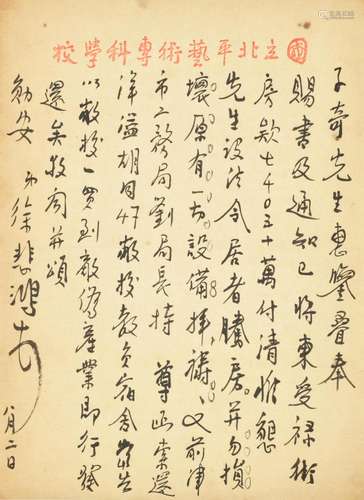 校學科專術藝平北立國
子奇先生惠鑒疊奉
賜書及通知已將東受祿街
房款七千〇五十萬付清惟懇
先生設法令居者騰房并勿損
壞原有一切設備拜禱又前津
市工務局劉局長持 尊函索還
洋溢胡同47敝校教員宿舍
以敝校一買到敵偽產業即行
還矣敬向并頌
勛安 弟徐悲鴻
八月二日